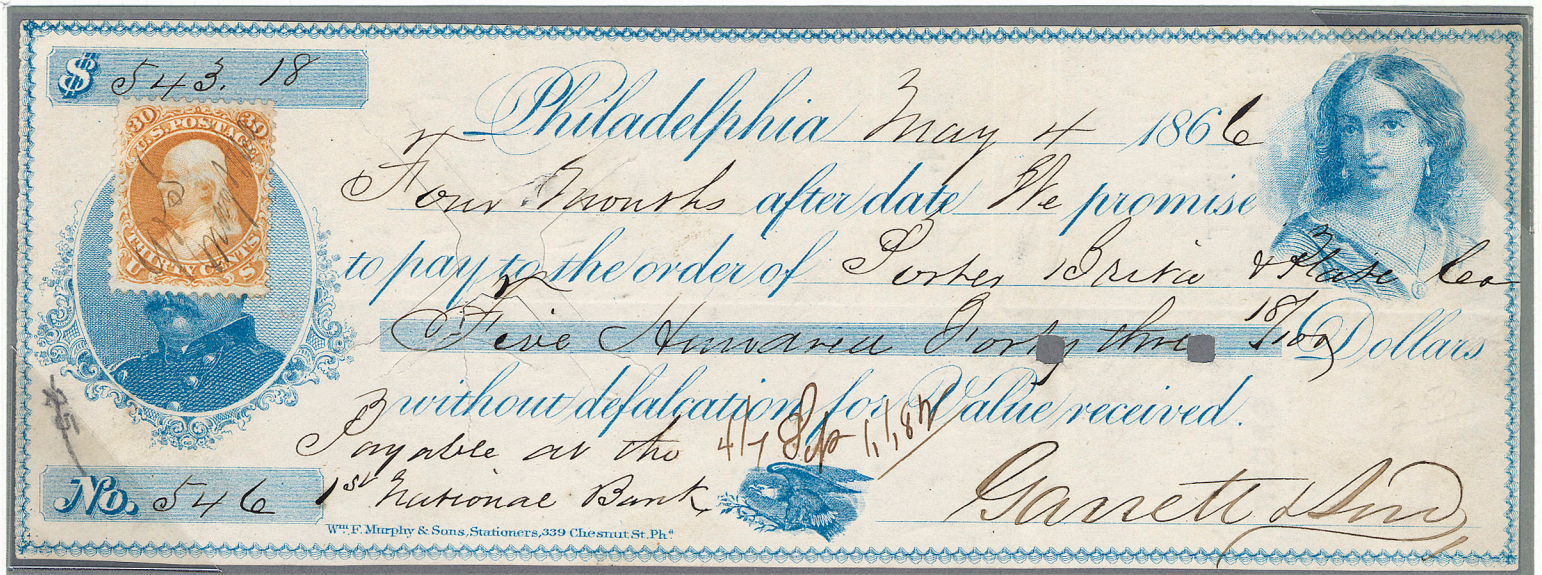 $ 543. 18
30 30
U.S. POSTAGE
THIRTY CENTS
U S
Philadelphia May 4 1866
Four Months after date We promise
to pay to the order of & Co
Five Hundred Forty three 18/100 Dollars
without defalcation, for Value received.
Payable at the
1st National Bank
Garrett & Sons
No. 546
Wm. F. Murphy & Sons, Stationers, 339 Chesnut St. Pha